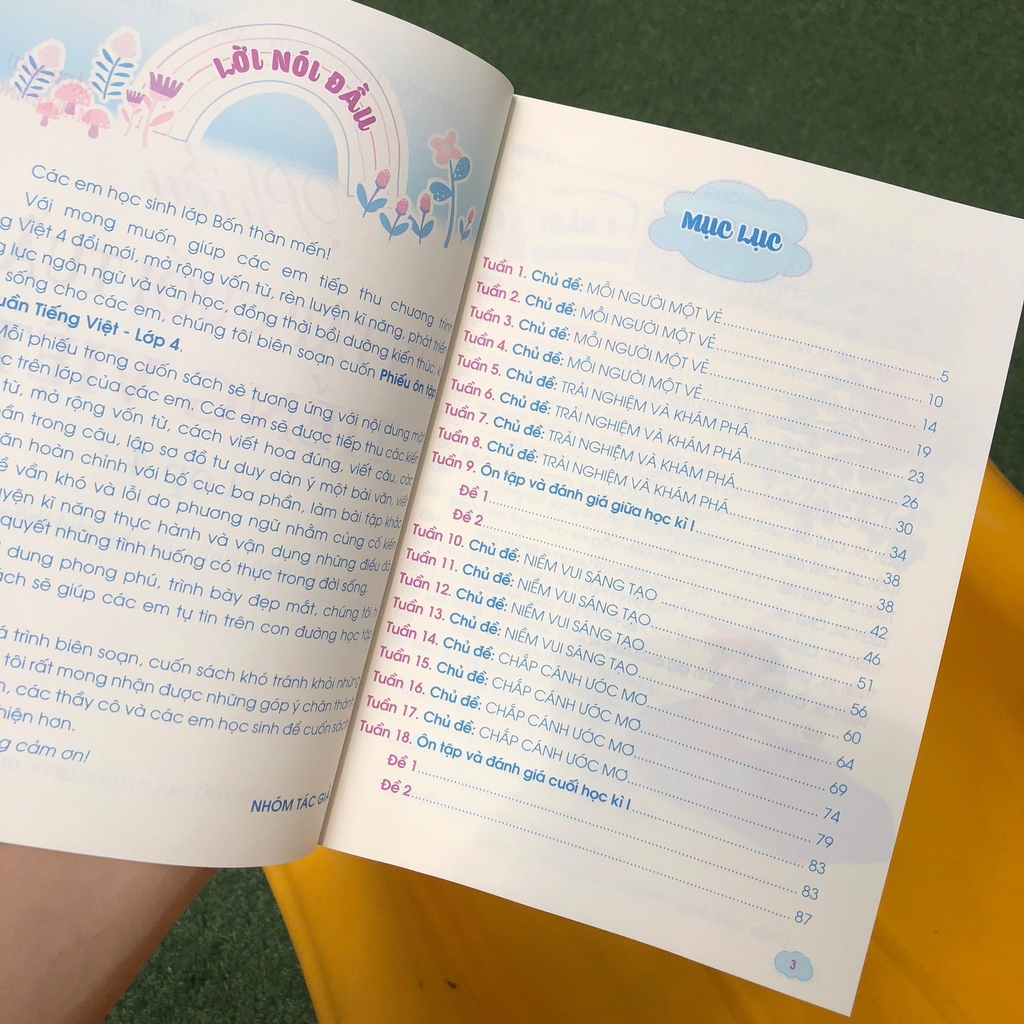 LỜI NÓI ĐẦU
Các em học sinh lớp Bốn thân mến!
Với mong muốn giúp các em tiếp thu chương trình
Việt 4 đổi mới, mở rộng vốn từ, rèn luyện kĩ năng, phát triển
lực ngôn ngữ và văn học, đồng thời bồi dưỡng kiến thức,
sống cho các em, chúng tôi biên soạn cuốn Phiếu ôn tập
Tiếng Việt - Lớp 4.
Mỗi phiếu trong cuốn sách sẽ tương ứng với nội dung
trên lớp của các em. Các em sẽ được tiếp thu các kiến
từ, mở rộng vốn từ, cách viết hoa đúng, viết câu, các
trong câu, lập sơ đồ tư duy dàn ý một bài văn, viết
hoàn chỉnh với bố cục ba phần, làm bài tập khắc
vần khó và lỗi do phương ngữ nhằm củng cố kiến
kĩ năng thực hành và vận dụng những điều đã
quyết những tình huống có thực trong đời sống.
dung phong phú, trình bày đẹp mắt, chúng tôi
sẽ giúp các em tự tin trên con đường học tập
trình biên soạn, cuốn sách khó tránh khỏi những
tôi rất mong nhận được những góp ý chân thành
các thầy cô và các em học sinh để cuốn sách
hơn.
cảm ơn!
NHÓM TÁC GIẢ
MỤC LỤC
Tuần 1. Chủ đề: MỖI NGƯỜI MỘT VẺ 5
Tuần 2. Chủ đề: MỖI NGƯỜI MỘT VẺ 10
Tuần 3. Chủ đề: MỖI NGƯỜI MỘT VẺ 14
Tuần 4. Chủ đề: MỖI NGƯỜI MỘT VẺ 19
Tuần 5. Chủ đề: TRẢI NGHIỆM VÀ KHÁM PHÁ 23
Tuần 6. Chủ đề: TRẢI NGHIỆM VÀ KHÁM PHÁ 26
Tuần 7. Chủ đề: TRẢI NGHIỆM VÀ KHÁM PHÁ 30
Tuần 8. Chủ đề: TRẢI NGHIỆM VÀ KHÁM PHÁ 34
Tuần 9. Ôn tập và đánh giá giữa học kì I 38
Đề 1 38
Đề 2 42
Tuần 10. Chủ đề: NIỀM VUI SÁNG TẠO 46
Tuần 11. Chủ đề: NIỀM VUI SÁNG TẠO 51
Tuần 12. Chủ đề: NIỀM VUI SÁNG TẠO 56
Tuần 13. Chủ đề: NIỀM VUI SÁNG TẠO 60
Tuần 14. Chủ đề: CHẮP CÁNH ƯỚC MƠ 64
Tuần 15. Chủ đề: CHẮP CÁNH ƯỚC MƠ 69
Tuần 16. Chủ đề: CHẮP CÁNH ƯỚC MƠ 74
Tuần 17. Chủ đề: CHẮP CÁNH ƯỚC MƠ 79
Tuần 18. Ôn tập và đánh giá cuối học kì I 83
Đề 1 83
Đề 2 87
3